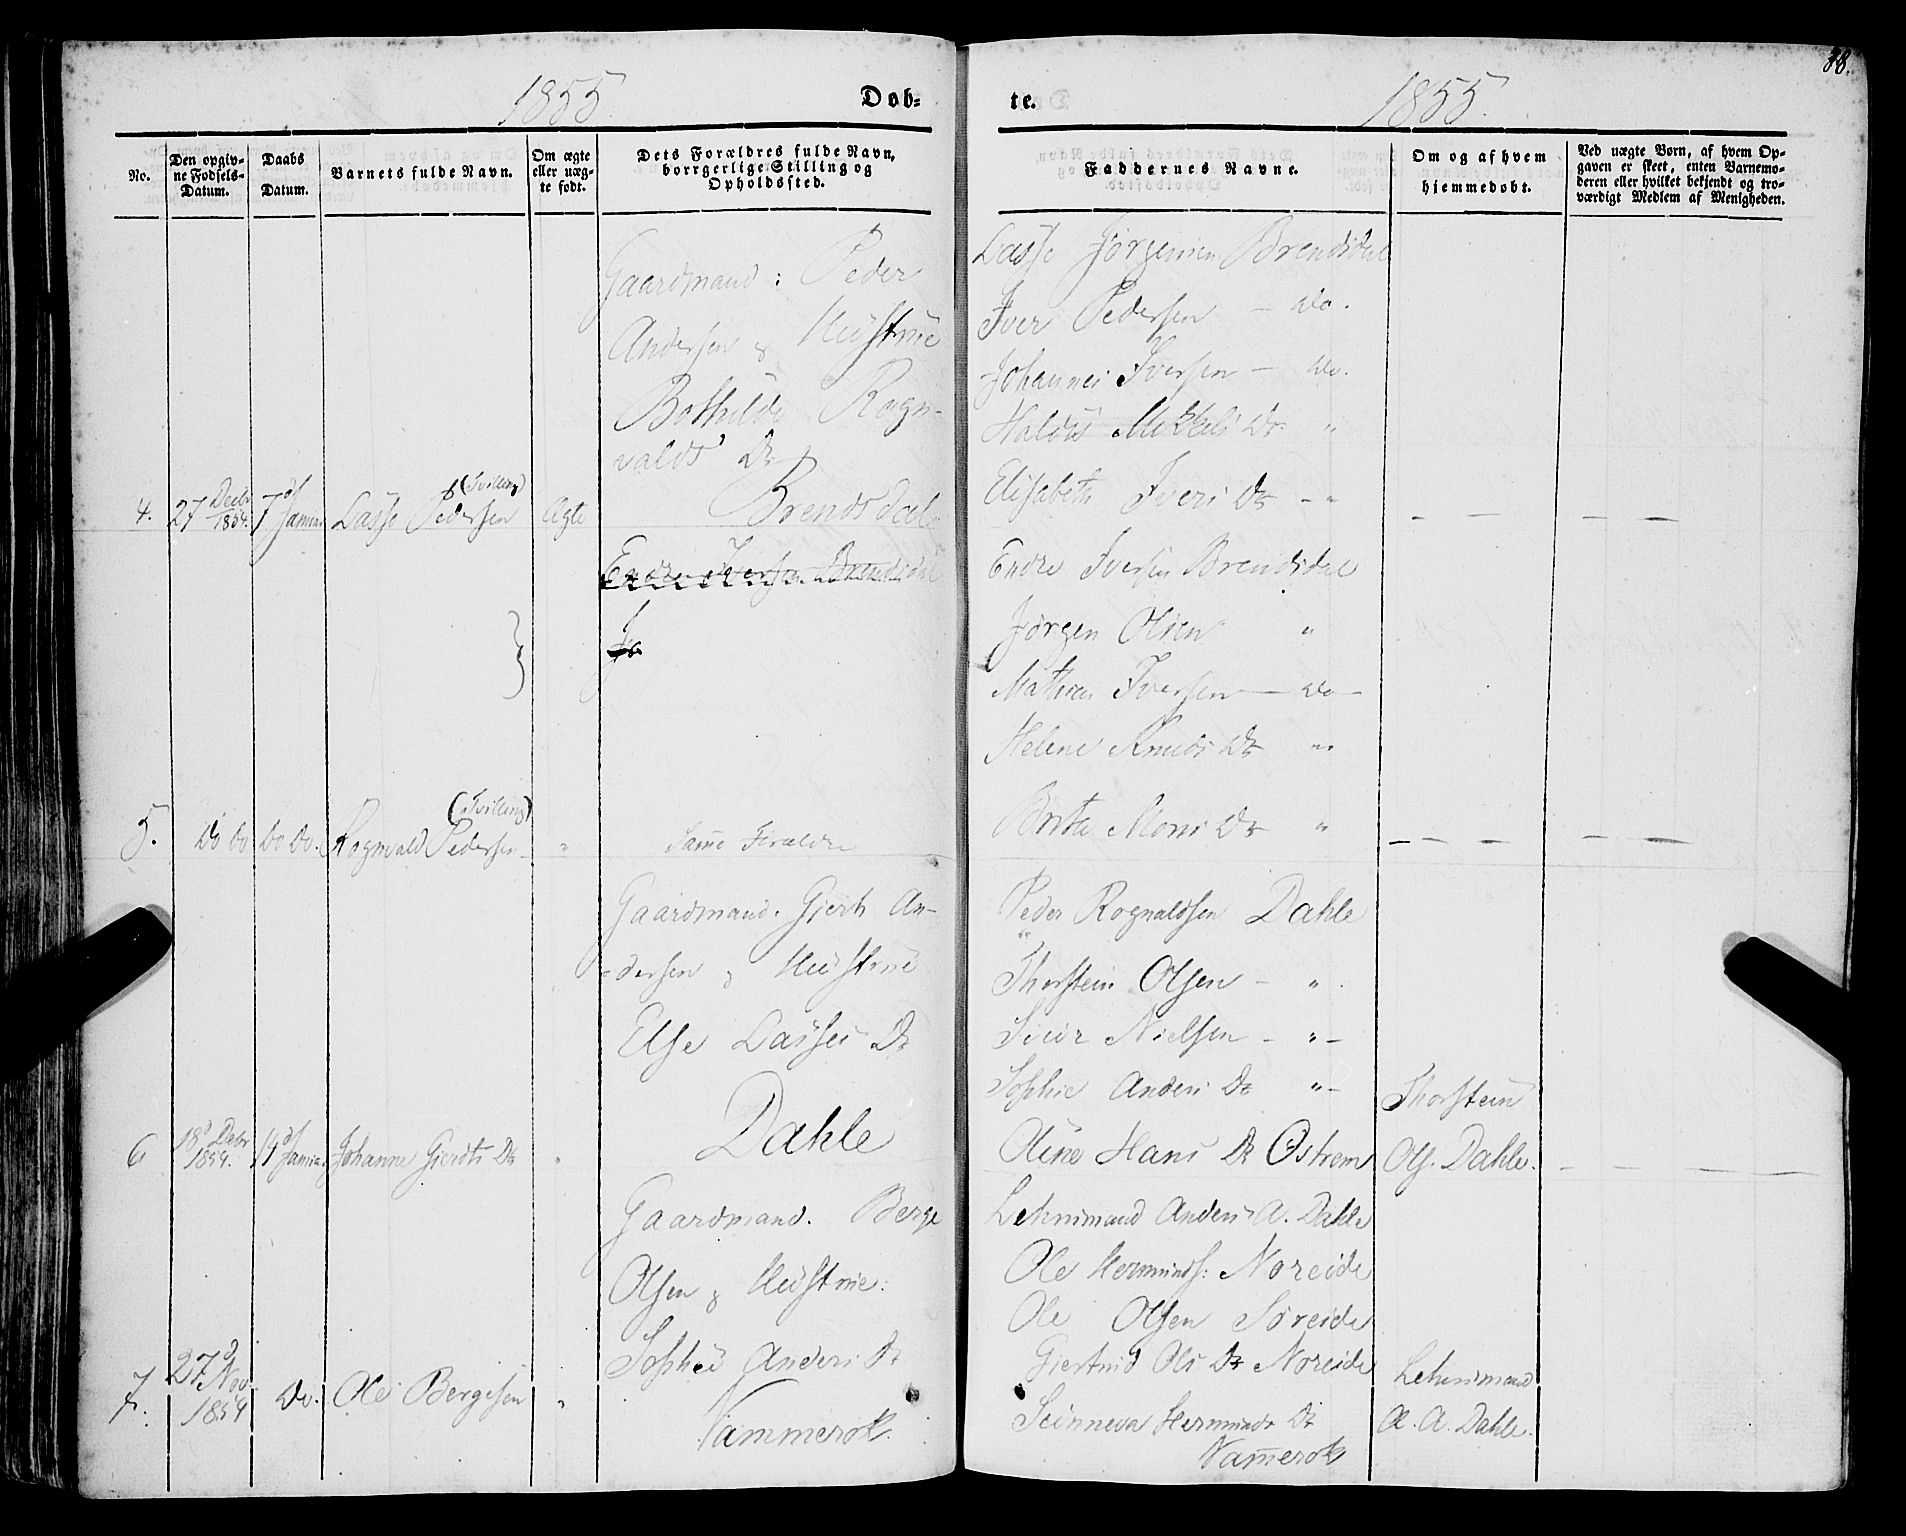 1855.
Døb-
No.
Den opgiv-
ne Fødsels-
Datum.
Daabs
Datum.
Barnets fulde Navn.
Om ægte
eller uæg-
te født.
Dets Forældres fulde Navn,
borrgerlige Stilling og
Opholdssted.
4.
27 Decbr
1854.
7d
Januar
(Tvilling)
Lasse Pedersen
Ægte
Gaardmand: Peder
Andersen & Hustrue
Bothilde Rogn-
valds Dr
Brendsdal
Endre Iversen Brendsdal
Jø
5.
Do Do
Do Do.
(Tvilling)
Rognvald Pedersen
"
Samme Forældre
6
18d Decbr
1854.
14d
Januar
Johanne Gjerdts Dr
"
Gaardmand. Gjert An-
-dersen & Hustrue
Else Lasses Dr
Dahle
7.
27d
Nov.
1854
Do.
Ole Bergesen
"
Gaardmand. Berge
Olsen & Hustrue:
Sophie Anders Dr
Nammerok.
te.
1855.
88.
Faddernes Navne.
Om og af hvem
hjemmedøbt.
Ved uægte Børn, af hvem Op-
gaven er skeet, enten Barnemo-
deren eller hvilket bekjendt og tro-
værdigt Medlem af Menigheden.
Lasse Jørgensen Brendsdal
Iver Pedersen - do.
Johannes Iversen - do.
Haldis Mikkels Dr. "
Elisabeth Ivers Dr - "
— — — —
Endre Iversen Brendsdal
Jørgen Olsen "
Mathias Iversen — do —
Helene Knuds Dr "
Brita Mons Dr "
— — — —
Peder Rognaldsen Dahle
Thorstein Olsen - " .
Siur Nielsen - " -
Sophie Anders Dr " -
Oline Hans Dr Østrem
Thorstein
Ols. Dahle.
— — — —
Lehnsmand Anders A. Dahle
Ole Hermunds: Noreide
Ole Olsen Søreide
Giertrud Ols Dr Noreide
Sünneva Hermunds Dr
Nam̅erok
Lehnsmand
A. A. Dahle.